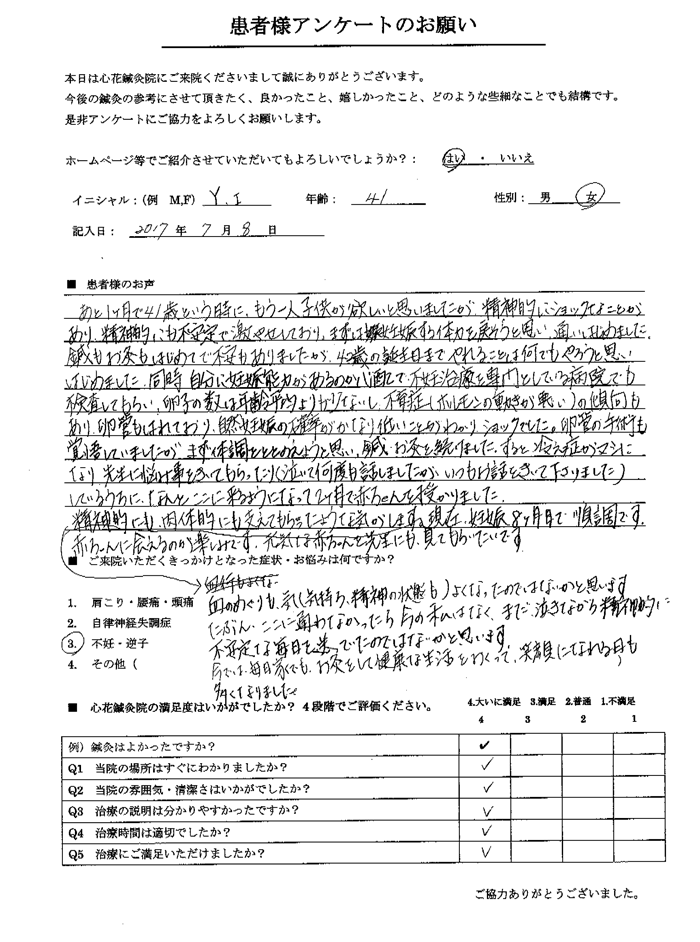 患者様アンケートのお願い
本日は心花鍼灸院にご来院くださいまして誠にありがとうございます。
今後の鍼灸の参考にさせて頂きたく、良かったこと、嬉しかったこと、どのような些細なことでも結構です。
是非アンケートにご協力をよろしくお願いします。
ホームページ等でご紹介させていただいてもよろしいでしょうか？： はい ・ いいえ
イニシャル：(例 M,F) Y.I 年齢： 41 性別： 男 女
記入日： 2017 年 7 月 8 日
■ 患者様のお声
あと1ヶ月で41歳という時に、もう一人子供が欲しいと思いましたが、精神的にショックなことが
あり、精神的にも不安定で激やせしており、まずは妊娠する体力を戻そうと思い、通いはじめました。
鍼もお灸もはじめてで不安もありましたが、42歳の誕生日までやれることは何でもやろうと思い
はじめました。同時、自分に妊娠能力があるのか心配で、不妊治療を専門としている病院でも
検査してもらい、卵子の数は年齢平均よりも少ないし、不育症(ホルモンの動きが悪い)の傾向も
あり、卵管もはれており、自然妊娠の確率がかなり低いことがわかり、ショックでした。卵管の手術も
覚悟していましたが、まず体調をととのえようと思い、鍼、お灸を続けました。すると冷え症がマシに
なり、先生に悩み事をきいてもらったり(泣いて何度も話しましたが、いつもお話をきいて下さりました)
しているうちに、なんとここに来るようになって2ヶ月で赤ちゃんを授かりました。
精神的にも、肉体的にも支えてもらったような気がします。現在、妊娠8ヶ月目で順調です。
赤ちゃんに会えるのが楽しみです。元気な赤ちゃんを先生にも、見てもらいたいです。
■ ご来院いただくきっかけとなった症状・お悩みは何ですか？
1. 肩こり・腰痛・頭痛
2. 自律神経失調症
3. 不妊・逆子
4. その他（
血のめぐりも、気(気持ち、精神の状態も)よくなったのではないかと思います
たぶん、ここに通わなかったら今の私はなく、まだ泣きながら精神的に
不安定な毎日を送っていたのではないかと思います。
今では、毎日家でも、お灸をして健康な生活をおくって、笑顔になれる日も
多くなりました。
■ 心花鍼灸院の満足度はいかがでしたか？ 4段階でご評価ください。
4.大いに満足 3.満足 2.普通 1.不満足
4 3 2 1
例）鍼灸はよかったですか？ ✓
Q1 当院の場所はすぐにわかりましたか？ ✓
Q2 当院の雰囲気・清潔さはいかがでしたか？ ✓
Q3 治療の説明は分かりやすかったですか？ ✓
Q4 治療時間は適切でしたか？ ✓
Q5 治療にご満足いただけましたか？ ✓
ご協力ありがとうございました。